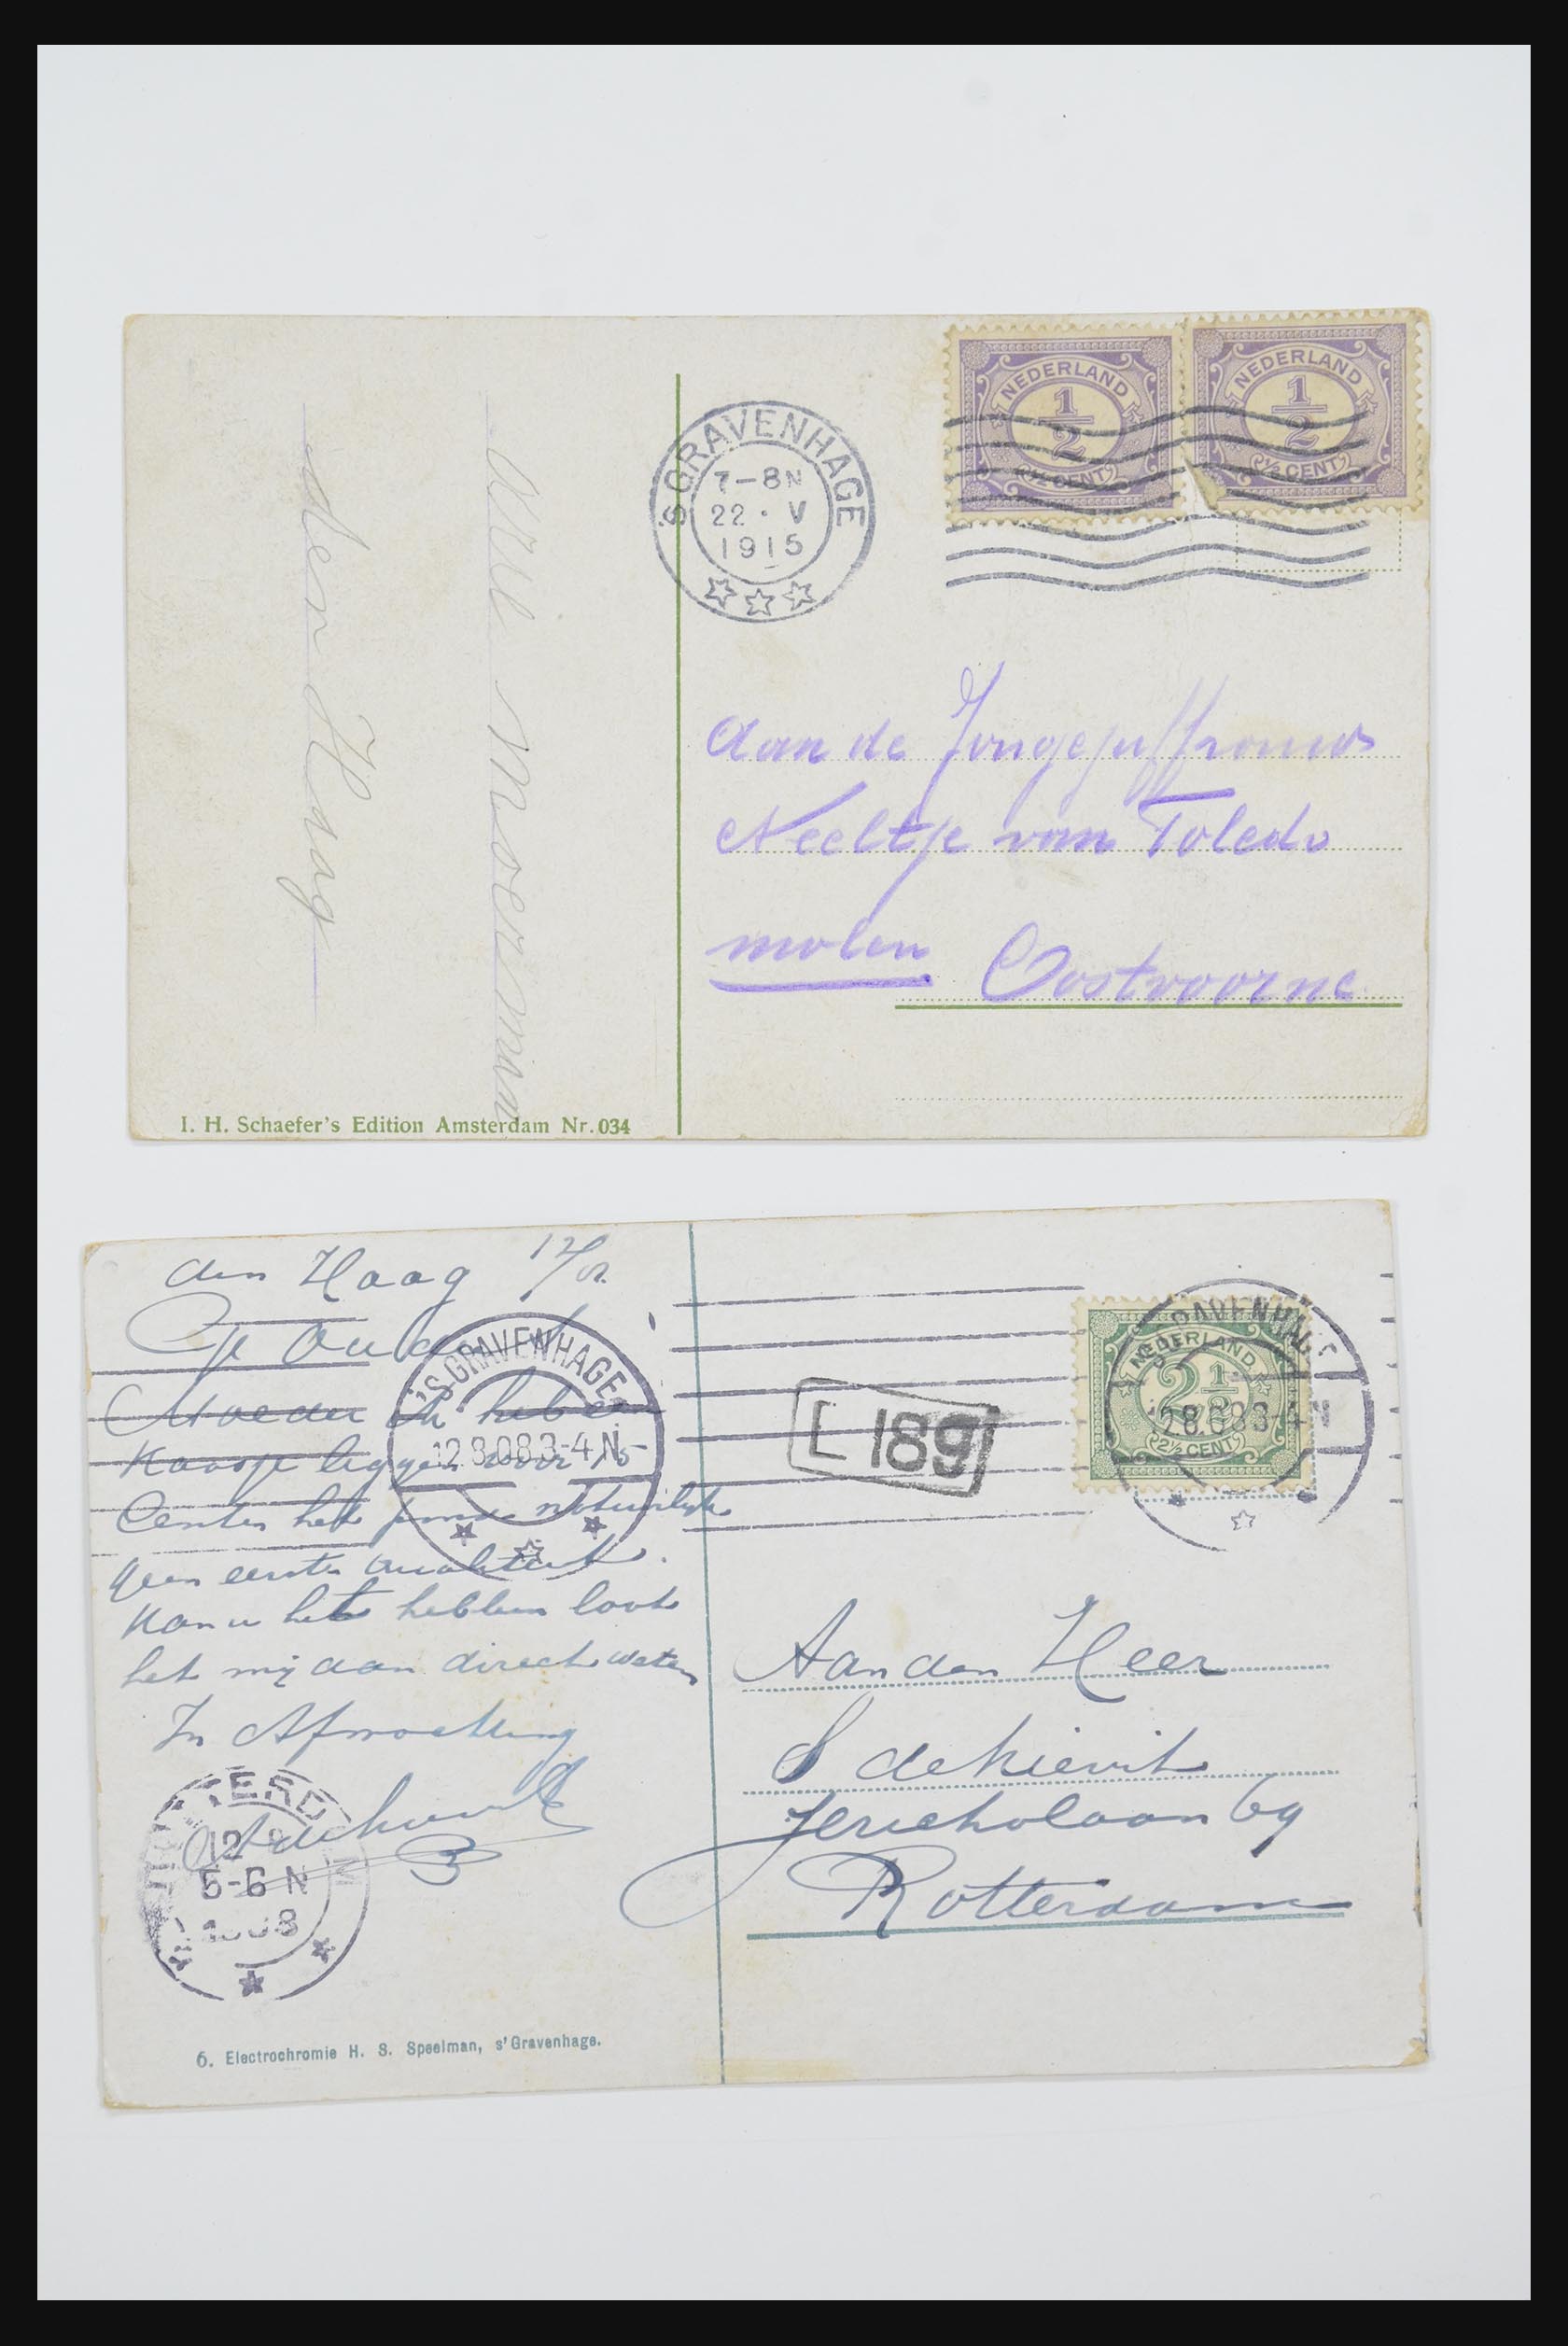 'S GRAVENHAGE
7-8N
22 · V
1915
NEDERLAND
1/2
½ CENT
NEDERLAND
1/2
½ CENT
Aan de Jongejuffrouw
Neeltje van Toledo
molen
Oostvoorne
den Haag
I. H. Schaefer's Edition Amsterdam Nr. 034
den Haag
Op
Moeder ik heb een
Koopje liggen voor
Centen het natuurlijk
geen eerste qualiteit.
Kan u het hebben laat
het mij dan direct weten
In Afwachting
'S-GRAVENHAGE
12.8.08.3-4 N
L 189
NEDERLAND
2½
2½ CENT
GRAVENHAGE
12.8.08 3-4 N
Aan den Heer
S de Kievit
Jericholaan 69
Rotterdam
12
5-6 N
6. Electrochromie H. S. Speelman, s'Gravenhage.